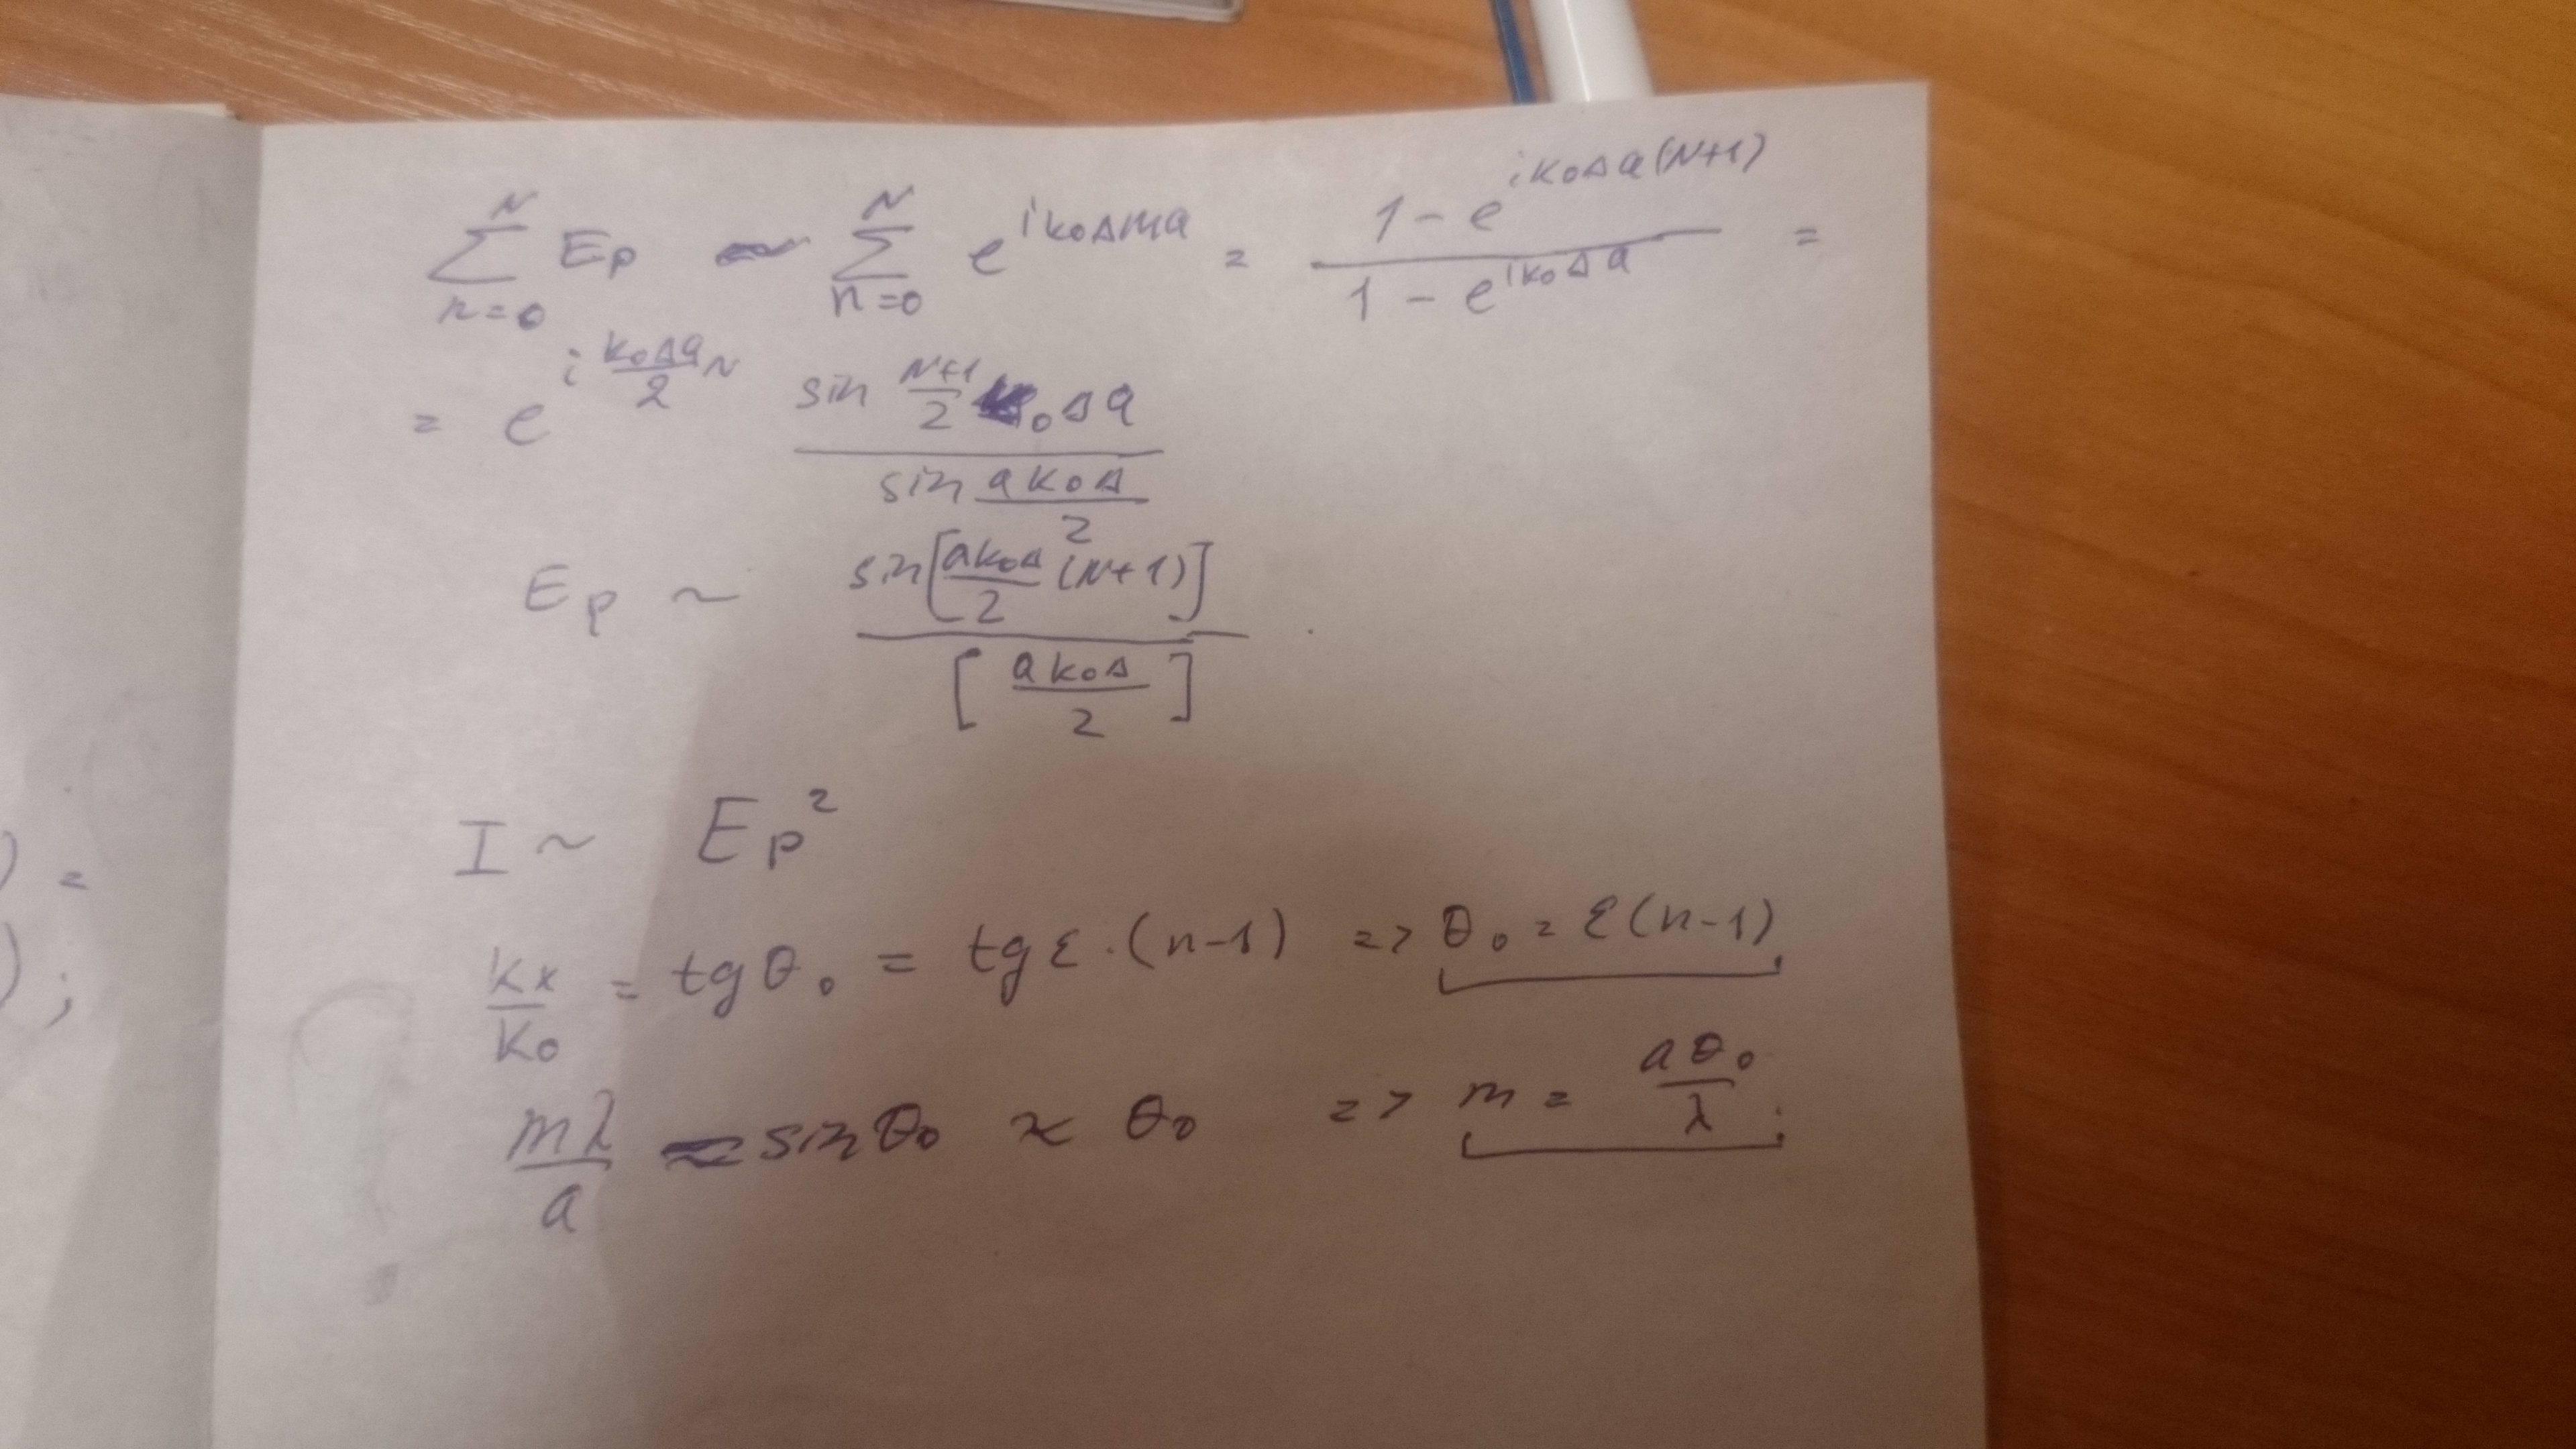 ∑_{n=0}^{N} E_p ~ ∑_{n=0}^{N} e^{i k₀ Δ m a} = (1 - e^{i k₀ Δ a (N+1)}) / (1 - e^{i k₀ Δ a}) =
= e^{i (k₀ Δ a / 2) N} (sin (N+1)/2 k₀ Δ a) / (sin (a k₀ Δ)/2)
E_p ~ sin[(a k₀ Δ / 2) (N+1)] / [a k₀ Δ / 2]
I ~ E_p²
) = k_x / k₀ = tg θ₀ = tg ε · (n-1) => θ₀ = ε (n-1)
) ; mλ / a = sin θ₀ ≈ θ₀ => m = a θ₀ / λ ;